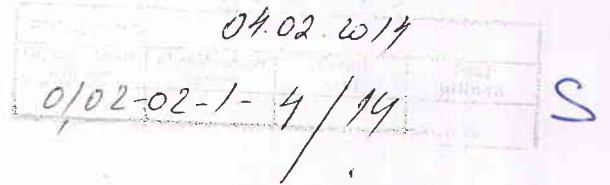 04.02.2014
0102-02-1-4/14
S